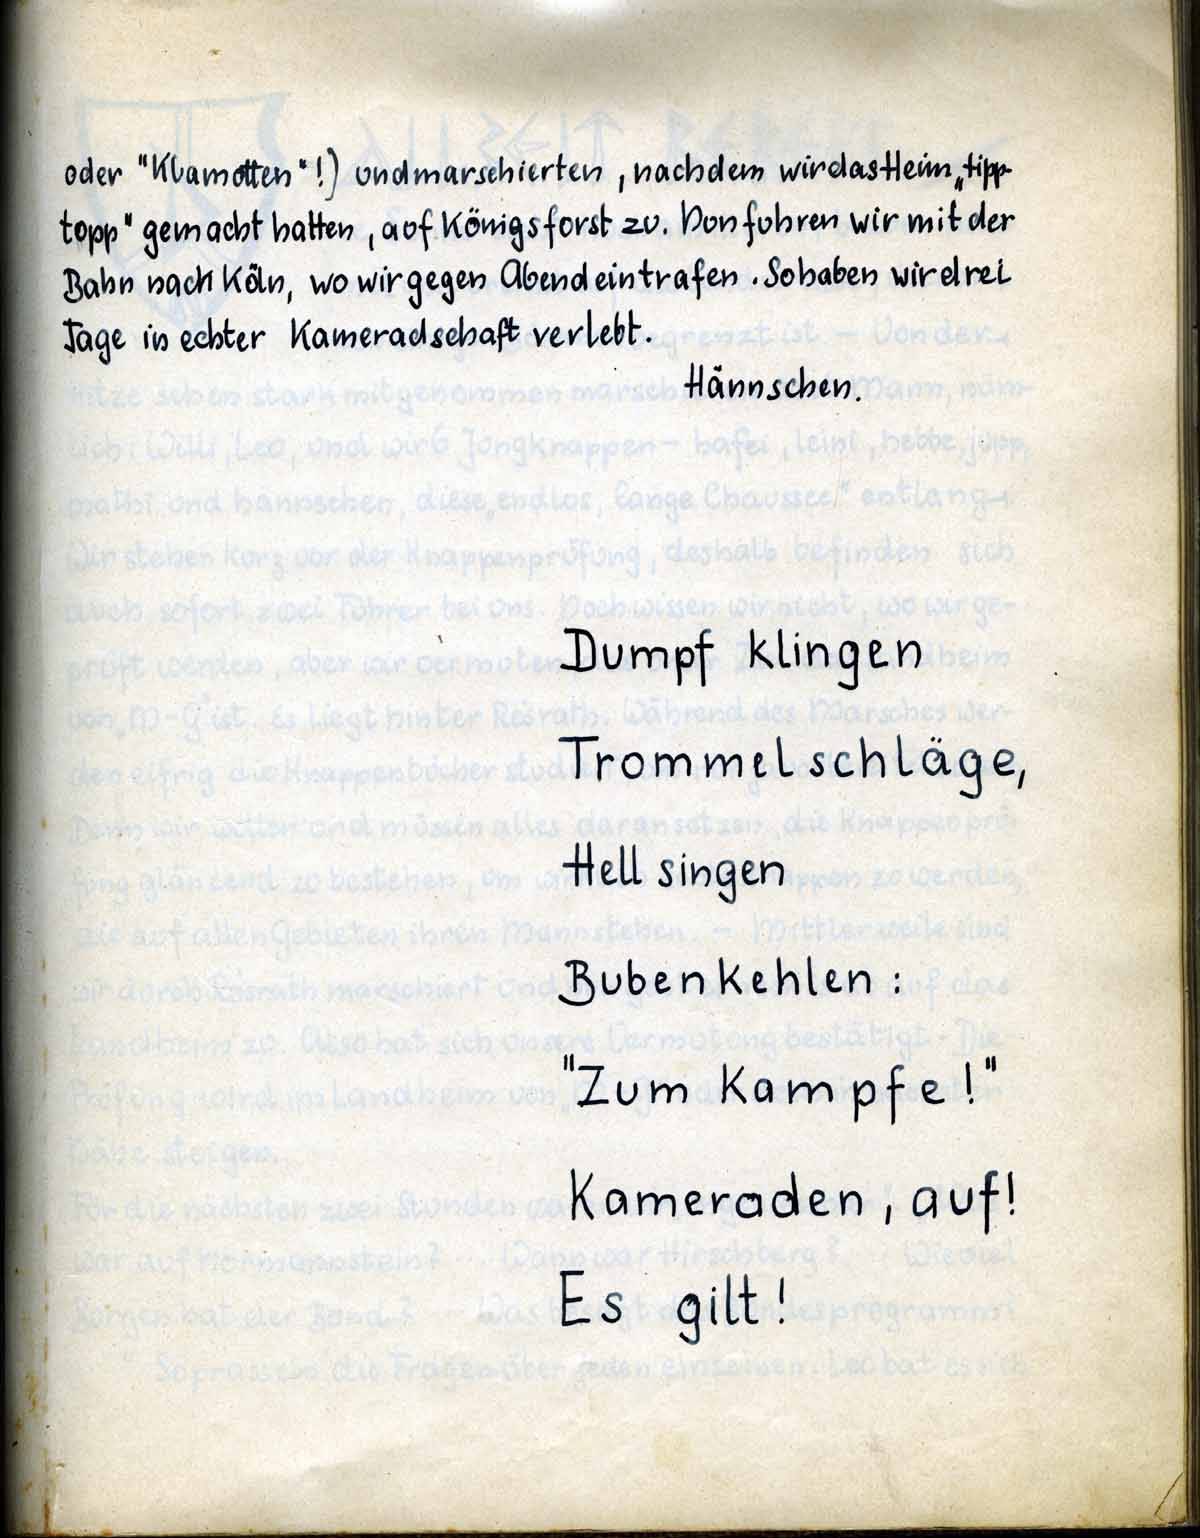 oder "Klamotten"!) und marschierten, nachdem wir das Heim „tipp-
topp" gemacht hatten, auf Königsforst zu. Nun fuhren wir mit der
Bahn nach Köln, wo wir gegen Abend eintrafen. So haben wir drei
Tage in echter Kameradschaft verlebt.
Hännschen.
Dumpf klingen
Trommelschläge,
Hell singen
Bubenkehlen:
"Zum Kampfe!"
Kameraden, auf!
Es gilt!